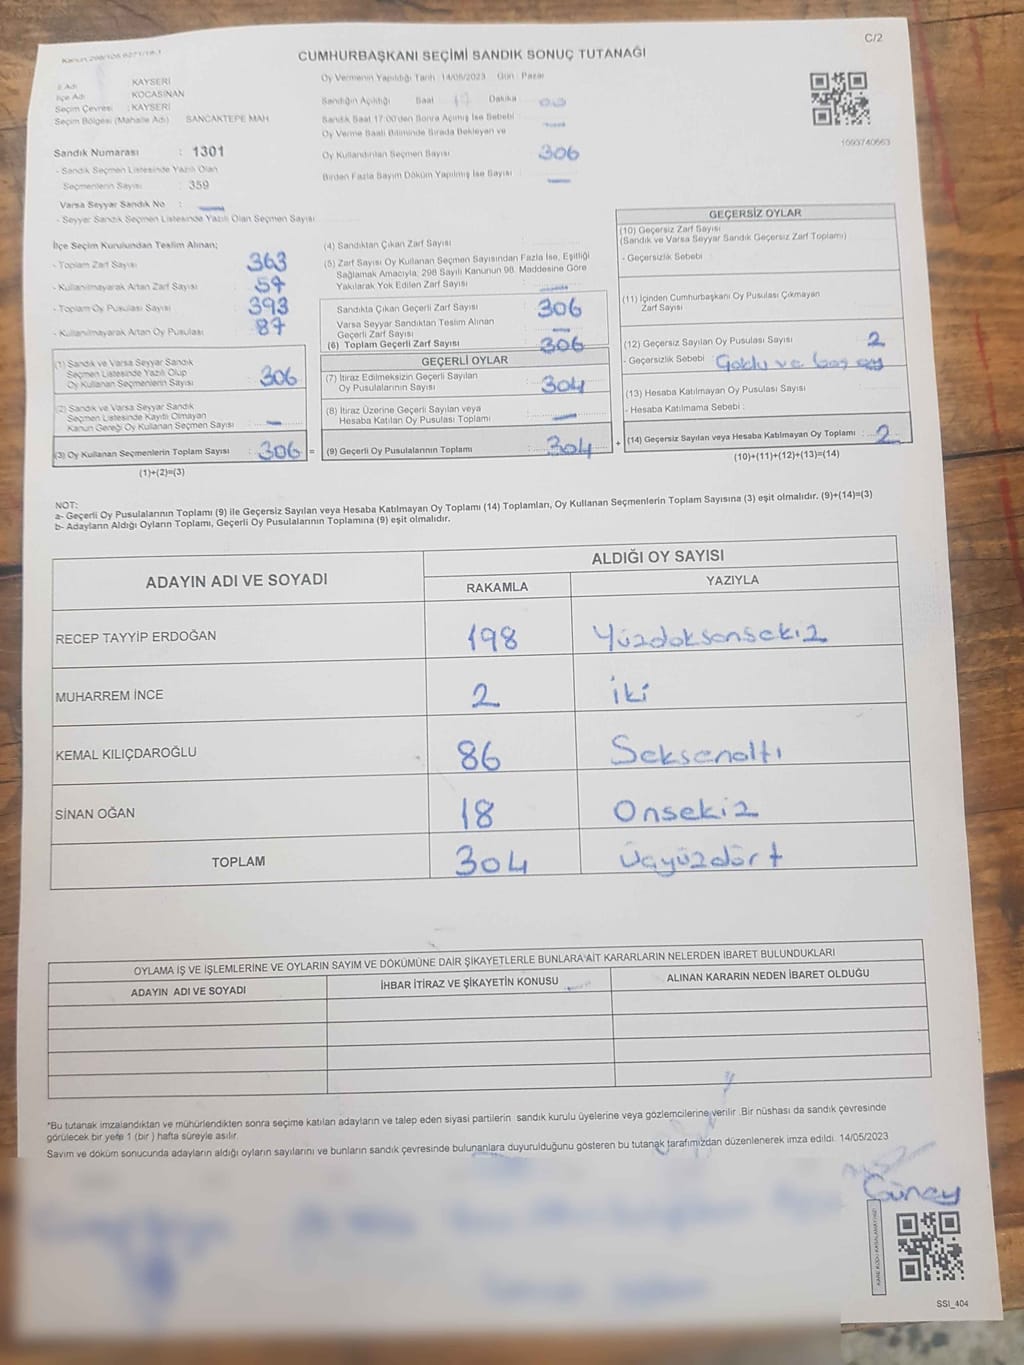 Kanun 298/105 6271/18-1
C/2
CUMHURBAŞKANI SEÇİMİ SANDIK SONUÇ TUTANAĞI
İl Adı : KAYSERİ
İlçe Adı : KOCASİNAN
Seçim Çevresi : KAYSERİ
Seçim Bölgesi (Mahalle Adı) SANCAKTEPE MAH.
Sandık Numarası : 1301
- Sandık Seçmen Listesinde Yazılı Olan
Seçmenlerin Sayısı : 359
Varsa Seyyar Sandık No : —
- Seyyar Sandık Seçmen Listesinde Yazılı Olan Seçmen Sayısı
Oy Vermenin Yapıldığı Tarih : 14/05/2023 Gün : Pazar
Sandığın Açıldığı Saat 17 Dakika 00
Sandık Saat 17:00'den Sonra Açılmış İse Sebebi —
Oy Verme Saati Bitiminde Sırada Bekleyen ve
Oy Kullandırılan Seçmen Sayısı 306
Birden Fazla Sayım Döküm Yapılmış İse Sayısı : —
1093740663
İlçe Seçim Kurulundan Teslim Alınan;
- Toplam Zarf Sayısı 363
- Kullanılmayarak Artan Zarf Sayısı 57
- Toplam Oy Pusulası Sayısı 393
- Kullanılmayarak Artan Oy Pusulası 87
(1) Sandık ve Varsa Seyyar Sandık
Seçmen Listesinde Yazılı Olup
Oy Kullanan Seçmenlerin Sayısı 306
(2) Sandık ve Varsa Seyyar Sandık
Seçmen Listesinde Kayıtlı Olmayan
Kanun Gereği Oy Kullanan Seçmen Sayısı —
(3) Oy Kullanan Seçmenlerin Toplam Sayısı : 306 =
(1)+(2)=(3)
(4) Sandıktan Çıkan Zarf Sayısı
(5) Zarf Sayısı Oy Kullanan Seçmen Sayısından Fazla İse, Eşitliği
Sağlamak Amacıyla, 298 Sayılı Kanunun 98. Maddesine Göre
Yakılarak Yok Edilen Zarf Sayısı —
Sandıkta Çıkan Geçerli Zarf Sayısı 306
Varsa Seyyar Sandıktan Teslim Alınan
Geçerli Zarf Sayısı —
(6) Toplam Geçerli Zarf Sayısı 306
GEÇERLİ OYLAR
(7) İtiraz Edilmeksizin Geçerli Sayılan
Oy Pusulalarının Sayısı 304
(8) İtiraz Üzerine Geçerli Sayılan veya
Hesaba Katılan Oy Pusulası Toplamı —
(9) Geçerli Oy Pusulalarının Toplamı : 304 +
GEÇERSİZ OYLAR
(10) Geçersiz Zarf Sayısı
(Sandık ve Varsa Seyyar Sandık Geçersiz Zarf Toplamı)
- Geçersizlik Sebebi :
(11) İçinden Cumhurbaşkanı Oy Pusulası Çıkmayan
Zarf Sayısı
(12) Geçersiz Sayılan Oy Pusulası Sayısı 2
- Geçersizlik Sebebi : ve boş oy
(13) Hesaba Katılmayan Oy Pusulası Sayısı
- Hesaba Katılmama Sebebi :
(14) Geçersiz Sayılan veya Hesaba Katılmayan Oy Toplamı : 2
(10)+(11)+(12)+(13)=(14)
NOT:
a- Geçerli Oy Pusulalarının Toplamı (9) ile Geçersiz Sayılan veya Hesaba Katılmayan Oy Toplamı (14) Toplamları, Oy Kullanan Seçmenlerin Toplam Sayısına (3) eşit olmalıdır. (9)+(14)=(3)
b- Adayların Aldığı Oyların Toplamı, Geçerli Oy Pusulalarının Toplamına (9) eşit olmalıdır.
ADAYIN ADI VE SOYADI
ALDIĞI OY SAYISI
RAKAMLA YAZIYLA
RECEP TAYYİP ERDOĞAN 198 Yüzdoksansekiz
MUHARREM İNCE 2 İki
KEMAL KILIÇDAROĞLU 86 Seksenaltı
SİNAN OĞAN 18 Onsekiz
TOPLAM 304 Üçyüzdört
OYLAMA İŞ VE İŞLEMLERİNE VE OYLARIN SAYIM VE DÖKÜMÜNE DAİR ŞİKAYETLERLE BUNLARA AİT KARARLARIN NELERDEN İBARET BULUNDUKLARI
ADAYIN ADI VE SOYADI İHBAR İTİRAZ VE ŞİKAYETİN KONUSU ALINAN KARARIN NEDEN İBARET OLDUĞU
*Bu tutanak imzalandıktan ve mühürlendikten sonra seçime katılan adayların ve talep eden siyasi partilerin sandık kurulu üyelerine veya gözlemcilerine verilir .Bir nüshası da sandık çevresinde
görülecek bir yere 1 (bir ) hafta süreyle asılır.
Sayım ve döküm sonucunda adayların aldığı oyların sayılarını ve bunların sandık çevresinde bulunanlara duyurulduğunu gösteren bu tutanak tarafımızdan düzenlenerek imza edildi. 14/05/2023
Güney
SSI_404